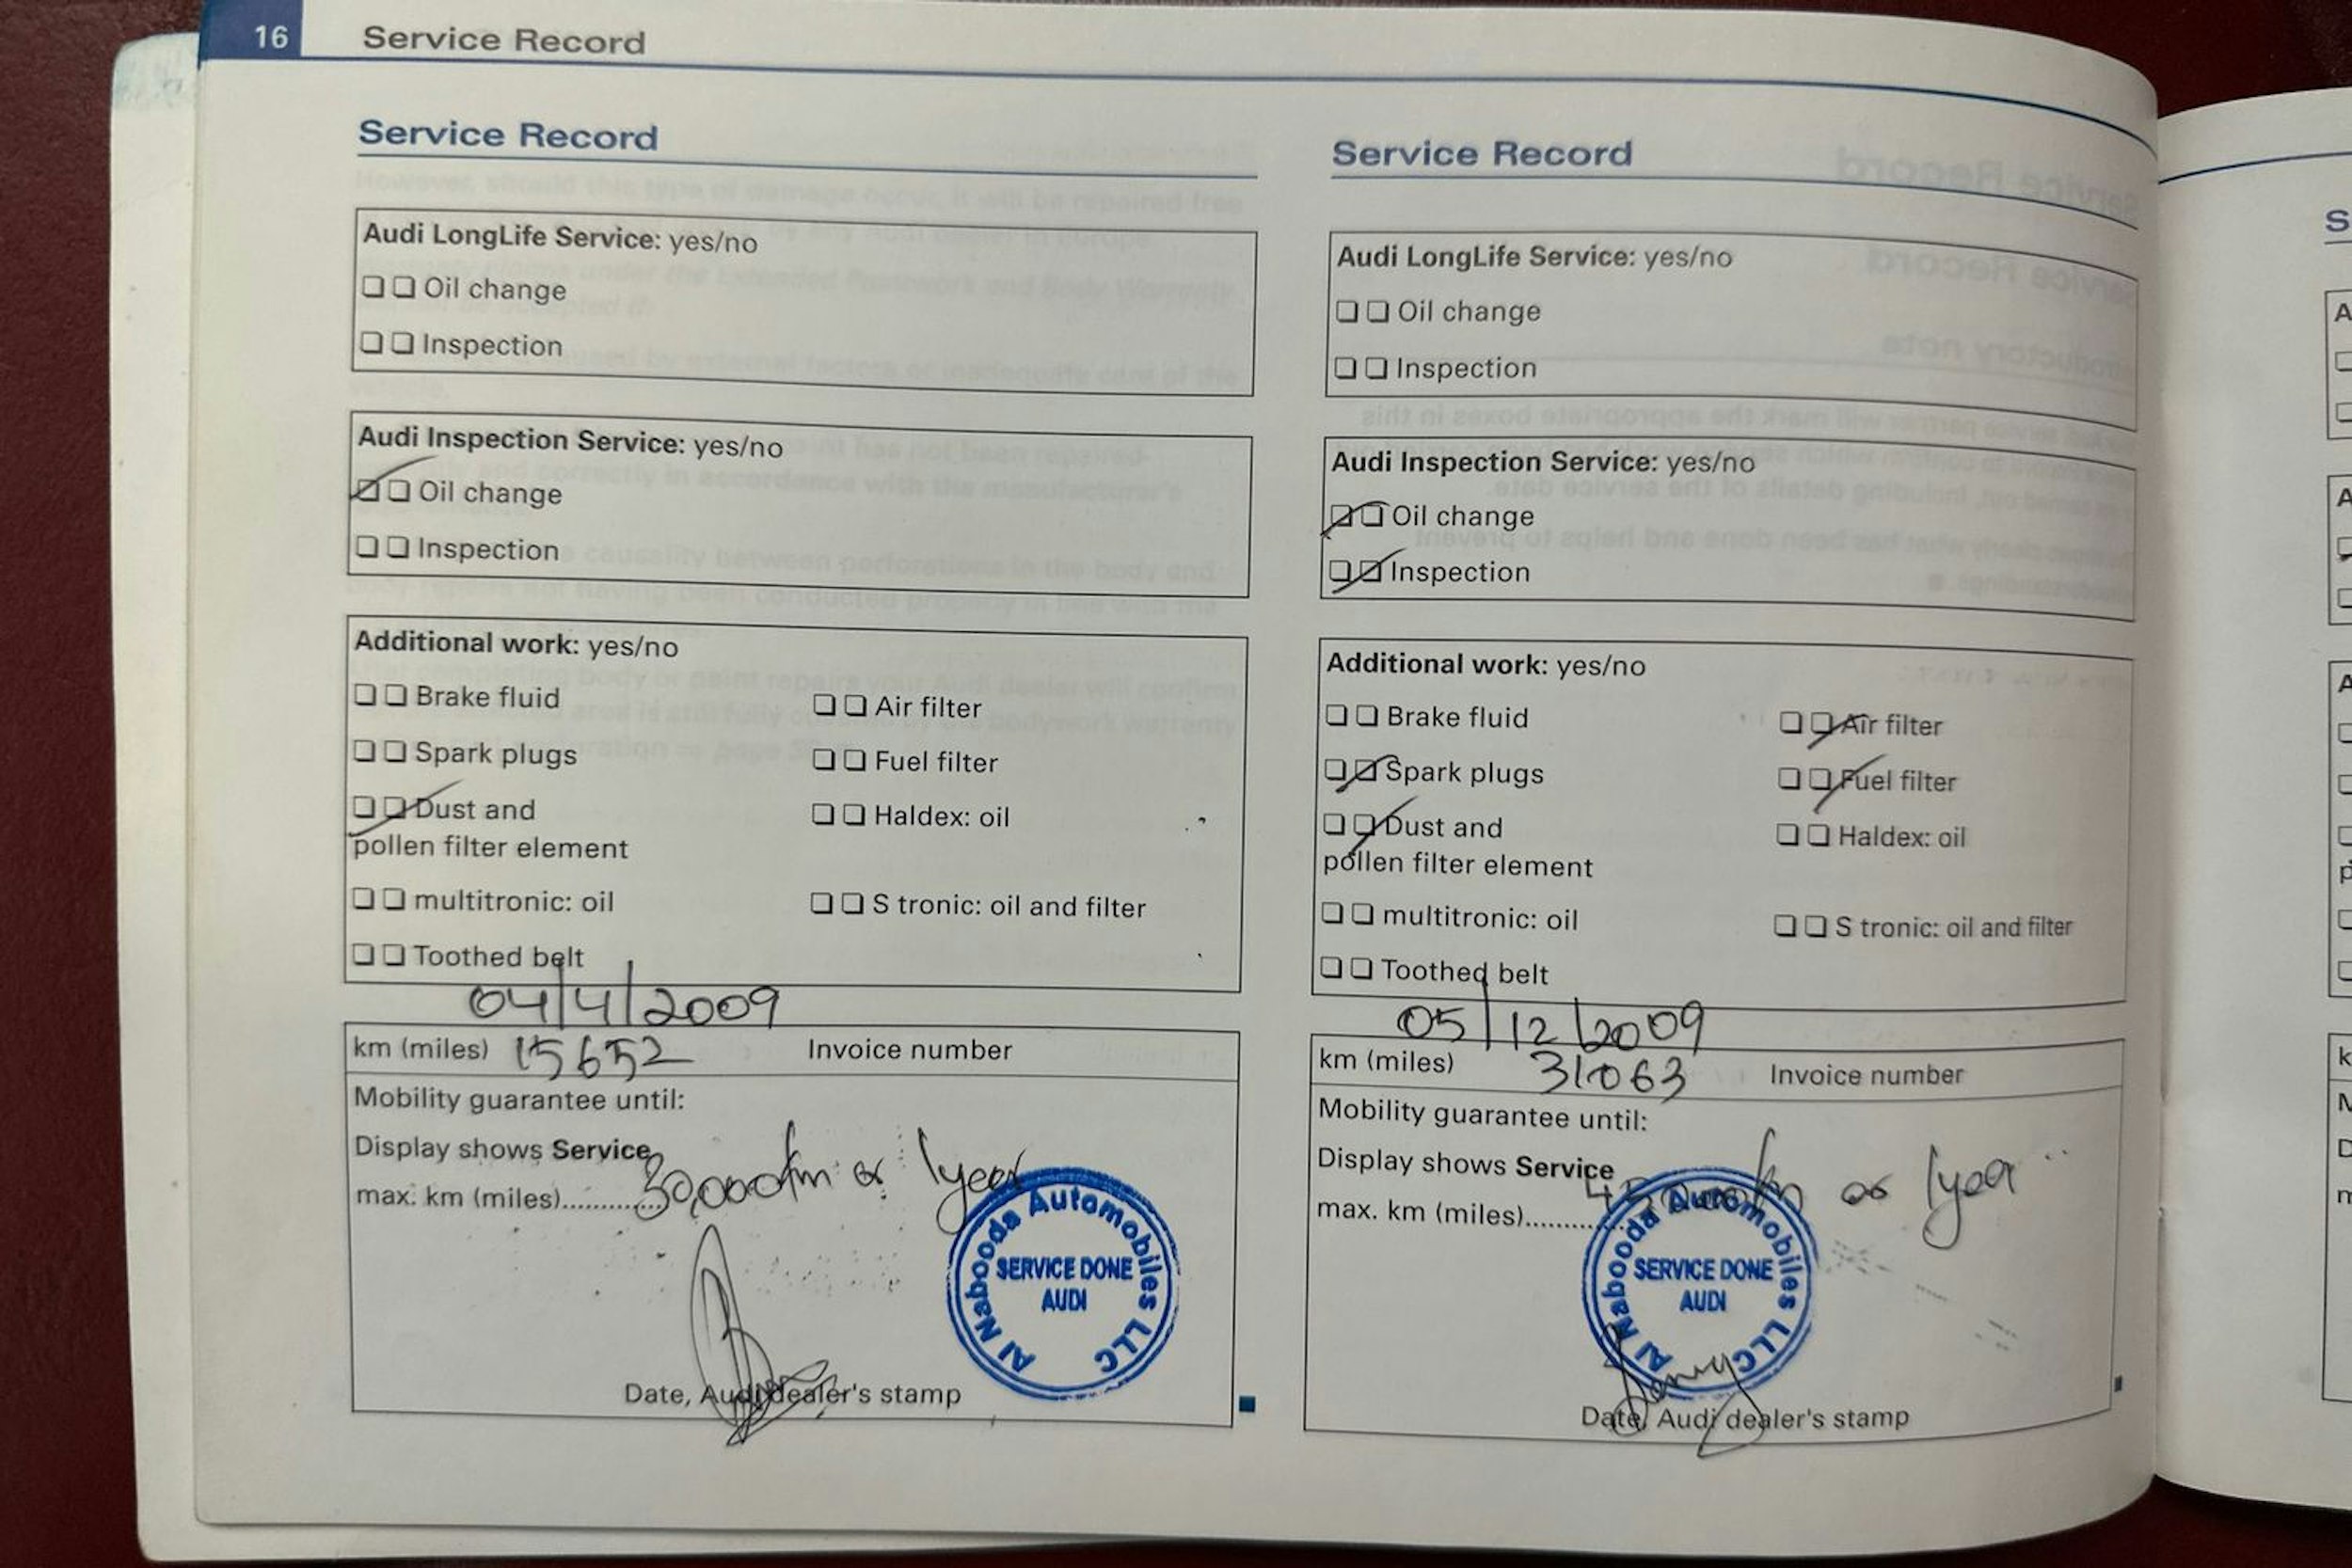 16 Service Record
Service Record
Audi LongLife Service: yes/no
❏ ❏ Oil change
❏ ❏ Inspection
Audi Inspection Service: yes/no
❏ ❏ Oil change
❏ ❏ Inspection
Additional work: yes/no
❏ ❏ Brake fluid
❏ ❏ Air filter
❏ ❏ Spark plugs
❏ ❏ Fuel filter
❏ ❏ Dust and
pollen filter element
❏ ❏ Haldex: oil
❏ ❏ multitronic: oil
❏ ❏ S tronic: oil and filter
❏ ❏ Toothed belt
04/4/2009
km (miles) 15652 Invoice number
Mobility guarantee until:
Display shows Service
max. km (miles)............ 30,000km or 1year
Al Nabooda Automobiles LLC
SERVICE DONE
AUDI
Date, Audi dealer's stamp
Service Record
Audi LongLife Service: yes/no
❏ ❏ Oil change
❏ ❏ Inspection
Audi Inspection Service: yes/no
❏ ❏ Oil change
❏ ❏ Inspection
Additional work: yes/no
❏ ❏ Brake fluid
❏ ❏ Air filter
❏ ❏ Spark plugs
❏ ❏ Fuel filter
❏ ❏ Dust and
pollen filter element
❏ ❏ Haldex: oil
❏ ❏ multitronic: oil
❏ ❏ S tronic: oil and filter
❏ ❏ Toothed belt
05/12/2009
km (miles) 31063 Invoice number
Mobility guarantee until:
Display shows Service
max. km (miles)............ or 1year
Al Nabooda Automobiles LLC
SERVICE DONE
AUDI
Date, Audi dealer's stamp